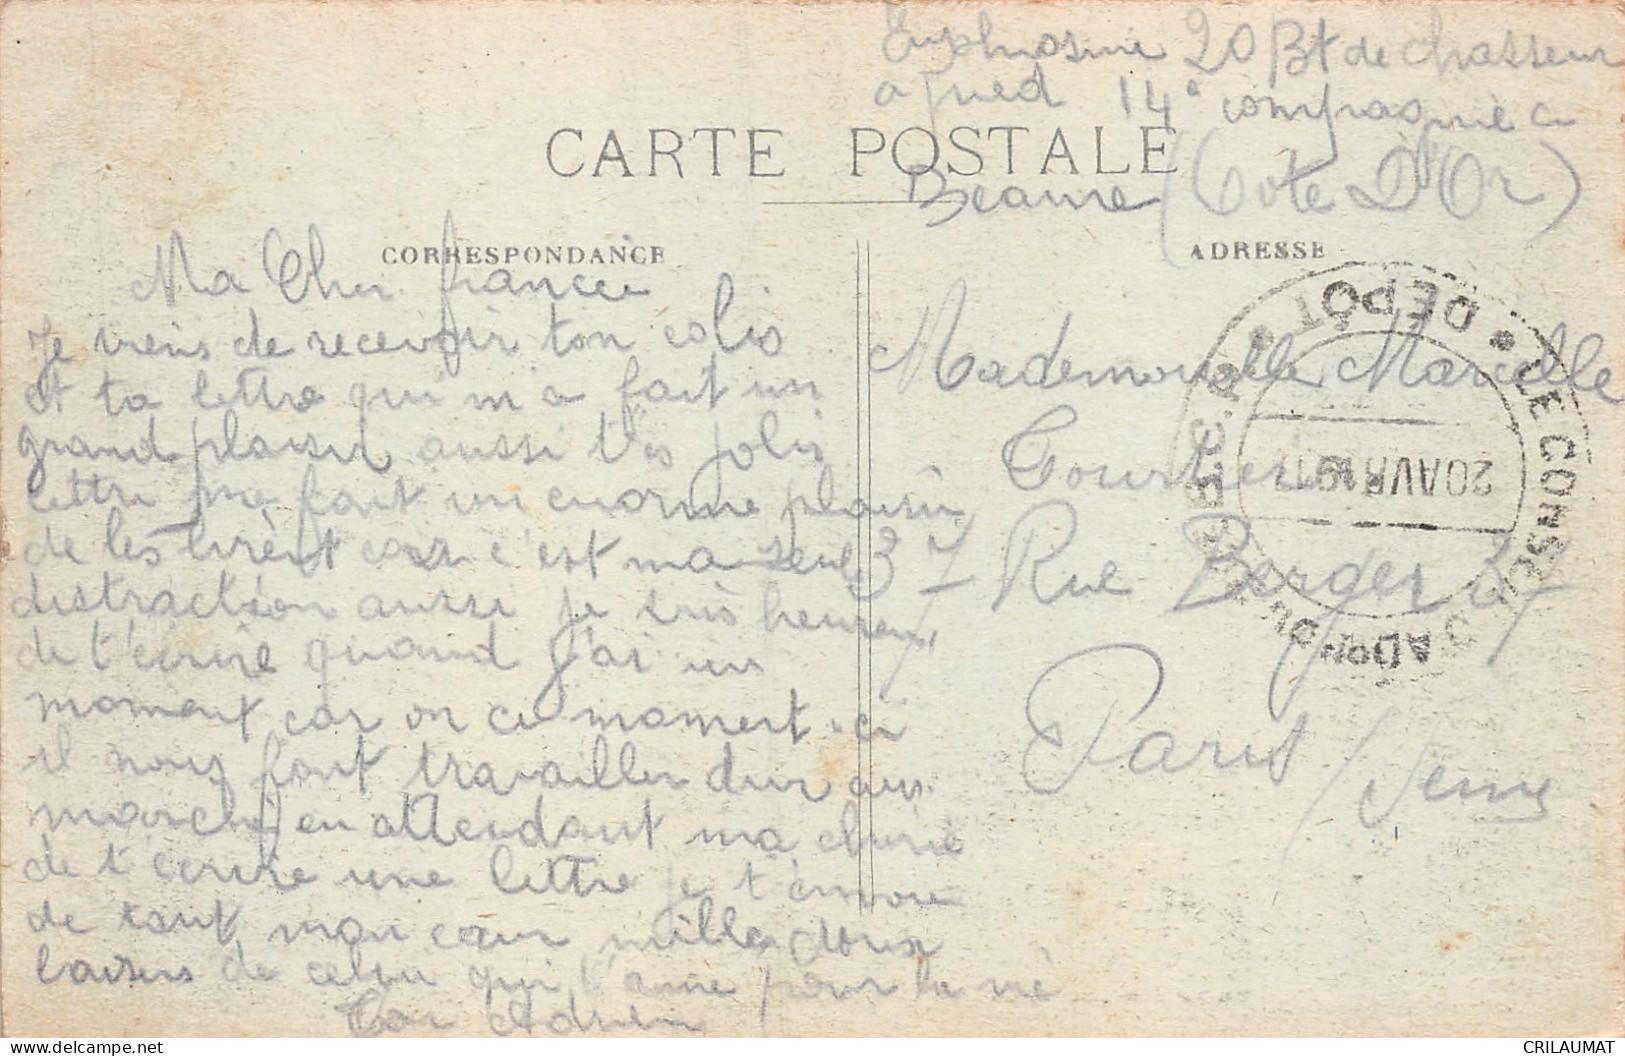 Euphrosine 20 Bt de chasseur
a pied 14e compagnie a
CARTE POSTALE
Beaune (Cote D'Or)
CORRESPONDANCE
ADRESSE
Ma Cher francee
Je viens de recevoir ton colis
et ta lettre qui m'a fait un
grand plaisir aussi tes jolis
lettre me fait un enorme plaisir
de les lirent car c'est ma seul
distraction aussi je suis heureux
de t'ecrire quand j'ai un
moment car on ce moment-ci
il nous font travailler dur aus
marche en attendant ma cherie
de t'ecrire une lettre je t'envoie
de tout mon cœur mille doux
baisers de celui qui t'aime pour la vie
Ton Adrien
Mademoiselle Marcelle
Courtier
37 Rue Berger 37
Paris / Seine
DÉPÔT * LE CONSEIL D'ADON DU * B.C.P. *
20 AVR 191
CRILAUMAT